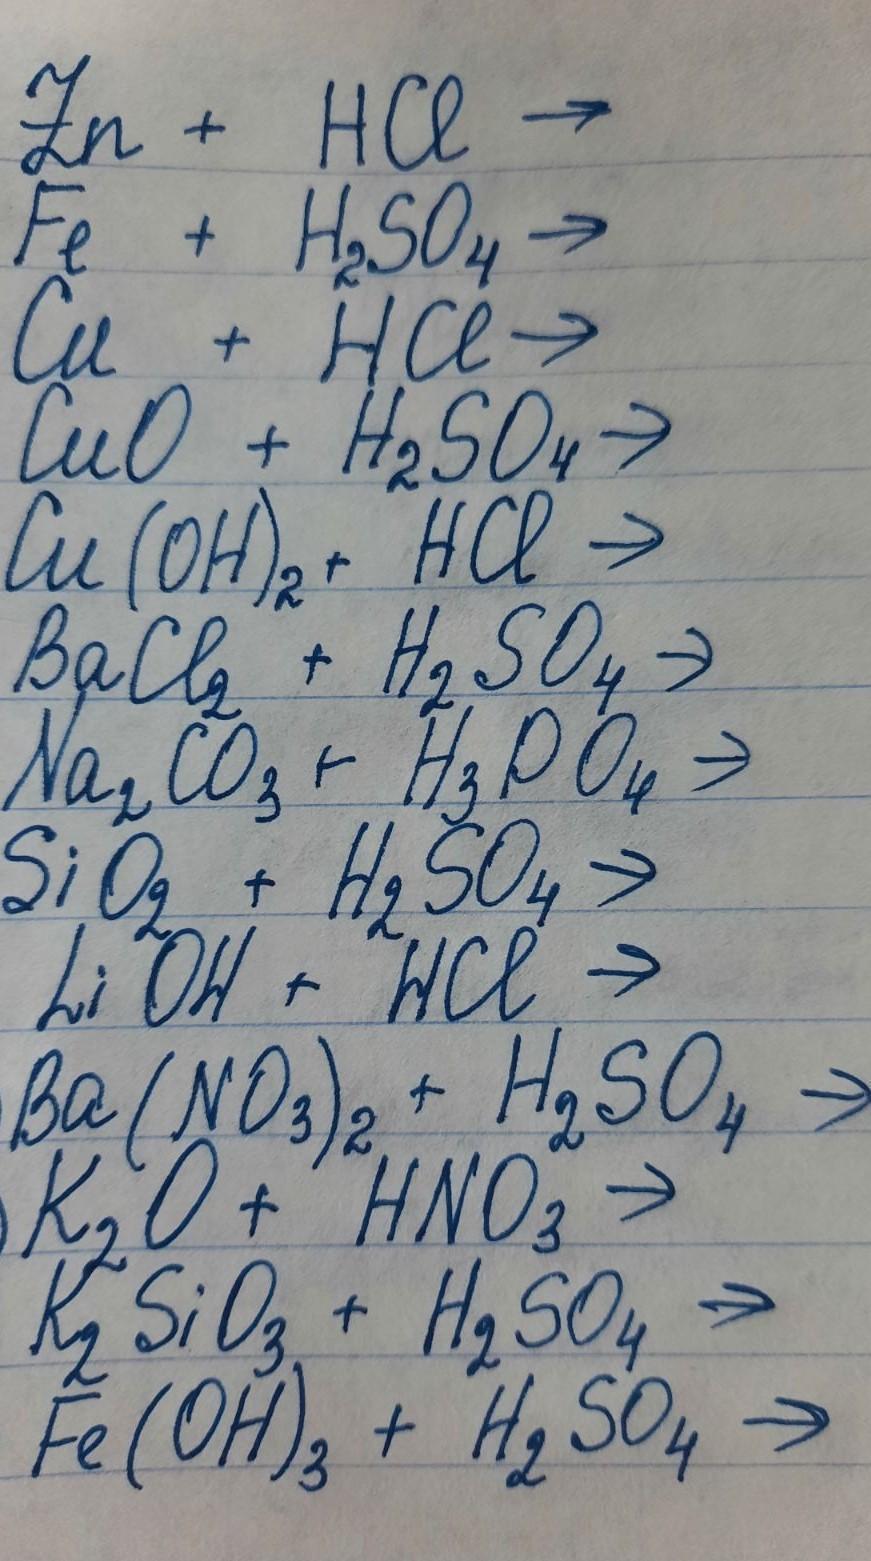 Zn + HCl →
Fe + H₂SO₄ →
Cu + HCl →
CuO + H₂SO₄ →
Cu(OH)₂ + HCl →
BaCl₂ + H₂SO₄ →
Na₂CO₃ + H₃PO₄ →
SiO₂ + H₂SO₄ →
LiOH + HCl →
Ba(NO₃)₂ + H₂SO₄ →
K₂O + HNO₃ →
K₂SiO₃ + H₂SO₄ →
Fe(OH)₃ + H₂SO₄ →